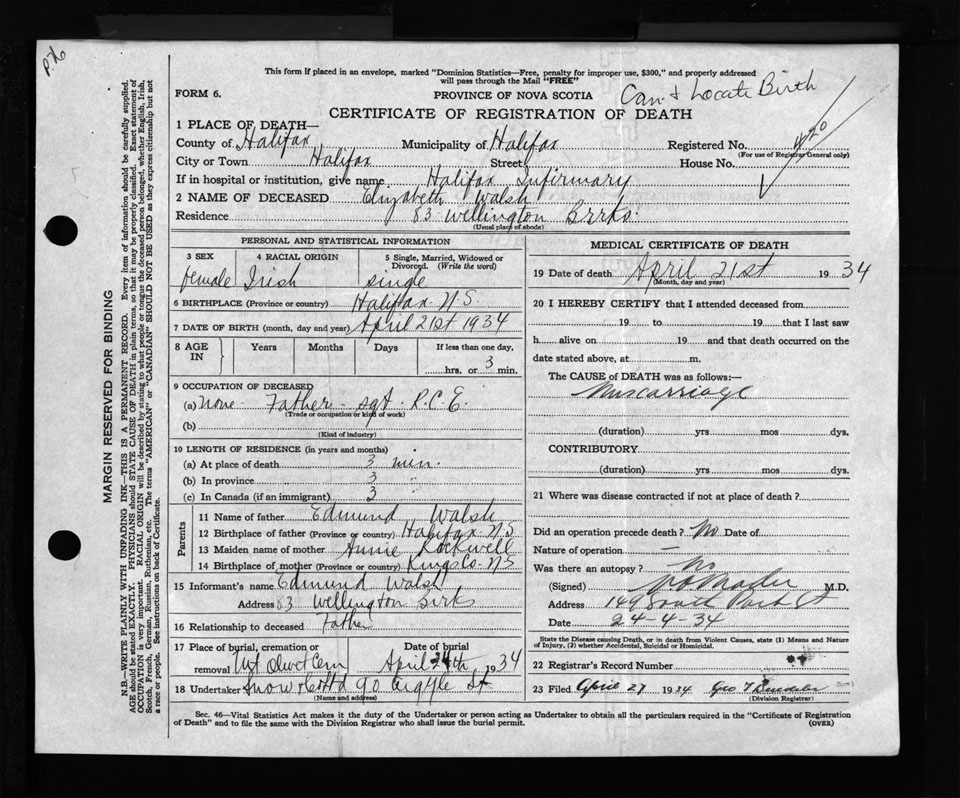 P.76
This form if placed in an envelope, marked "Dominion Statistics—Free, penalty for improper use, $300," and properly addressed
will pass through the Mail "FREE"
FORM 6.
PROVINCE OF NOVA SCOTIA
Can't Locate Birth
CERTIFICATE OF REGISTRATION OF DEATH
1 PLACE OF DEATH—
County of Halifax Municipality of Halifax Registered No. 420
(For use of Registrar General only)
City or Town Halifax Street House No.
If in hospital or institution, give name Halifax Infirmary
2 NAME OF DECEASED Elizabeth Walsh
Residence 83 Wellington Brrks.
(Usual place of abode)
PERSONAL AND STATISTICAL INFORMATION
3 SEX 4 RACIAL ORIGIN 5 Single, Married, Widowed or
Divorced. (Write the word)
female Irish single
6 BIRTHPLACE (Province or country) Halifax N.S.
7 DATE OF BIRTH (month, day and year) April 21st 1934
8 AGE IN Years Months Days If less than one day,
hrs. or 3 min.
9 OCCUPATION OF DECEASED
(a) None - Father - sgt R.C.E.
(Trade or occupation or kind of work)
(b)
(Kind of industry)
10 LENGTH OF RESIDENCE (in years and months)
(a) At place of death 3 min.
(b) In province 3 "
(c) In Canada (if an immigrant) 3 "
Parents
11 Name of father Edmund Walsh
12 Birthplace of father (Province or country) Halifax N.S
13 Maiden name of mother Annie Rockwell
14 Birthplace of mother (Province or country) Kings Co. NS
15 Informant's name Edmund Walsh
Address 83 Wellington Brks
16 Relationship to deceased Father
17 Place of burial, cremation or Date of burial
removal Mt Olivet Cem April 24th, 1934
18 Undertaker Snow & Co Ltd 90 Argyle St
(Name and address)
MEDICAL CERTIFICATE OF DEATH
19 Date of death April 21st 1934
(Month, day and year)
20 I HEREBY CERTIFY that I attended deceased from
19 to 19 that I last saw
h alive on 19 and that death occurred on the
date stated above, at m.
The CAUSE OF DEATH was as follows:—
Miscarriage
(duration) yrs mos dys.
CONTRIBUTORY
(duration) yrs mos dys.
21 Where was disease contracted if not at place of death?
Did an operation precede death? No Date of
Nature of operation —
Was there an autopsy? No
(Signed) Mader M.D.
Address 149 South Park St
Date 24-4-34
State the Disease causing Death, or in death from Violent Causes, state (1) Means and Nature
of Injury, (2) whether Accidental, Suicidal or Homicidal.
22 Registrar's Record Number
23 Filed April 27 1934 Geo
(Division Registrar)
Sec. 46—Vital Statistics Act makes it the duty of the Undertaker or person acting as Undertaker to obtain all the particulars required in the "Certificate of Registration
of Death" and to file the same with the Division Registrar who shall issue the burial permit.
(OVER)
MARGIN RESERVED FOR BINDING
N.B.—WRITE PLAINLY WITH UNFADING INK—THIS IS A PERMANENT RECORD. Every item of information should be carefully supplied.
AGE should be stated EXACTLY. PHYSICIANS should STATE CAUSE OF DEATH in plain terms, so that it may be properly classified. Exact statement of
OCCUPATION is very important. RACIAL ORIGIN will be described by stating to what people or tongue the deceased person belonged, whether English, Irish,
Scotch, French, German, Russian, Ruthenian, etc. The terms "AMERICAN" or "CANADIAN" SHOULD NOT BE USED as they express citizenship but not
a race or people. See instructions on back of Certificate.